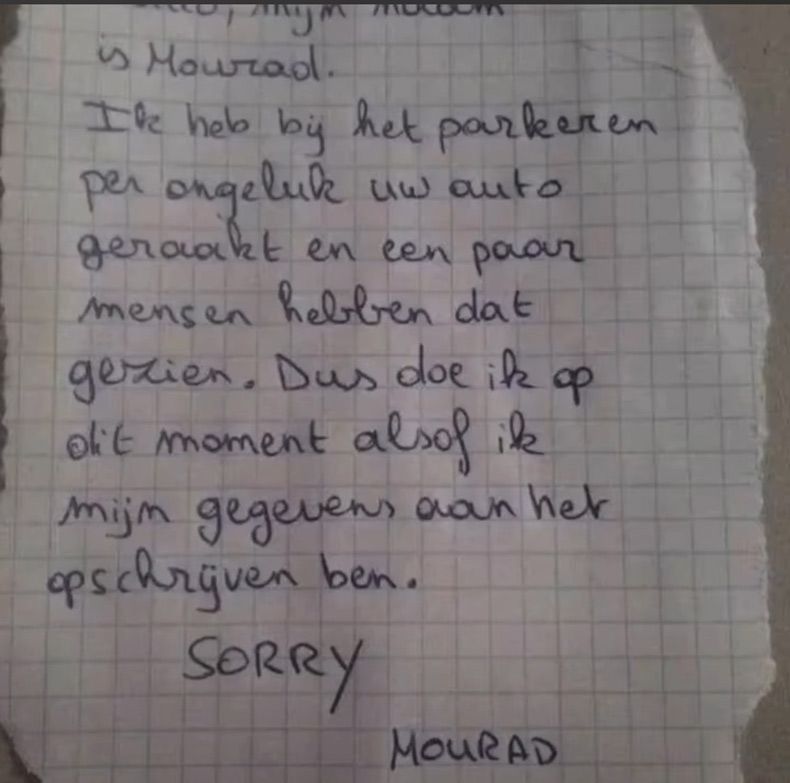 mijn
is Mourad.
Ik heb bij het parkeren
per ongeluk uw auto
geraakt en een paar
mensen hebben dat
gezien. Dus doe ik op
dit moment alsof ik
mijn gegevens aan het
opschrijven ben.
SORRY
MOURAD